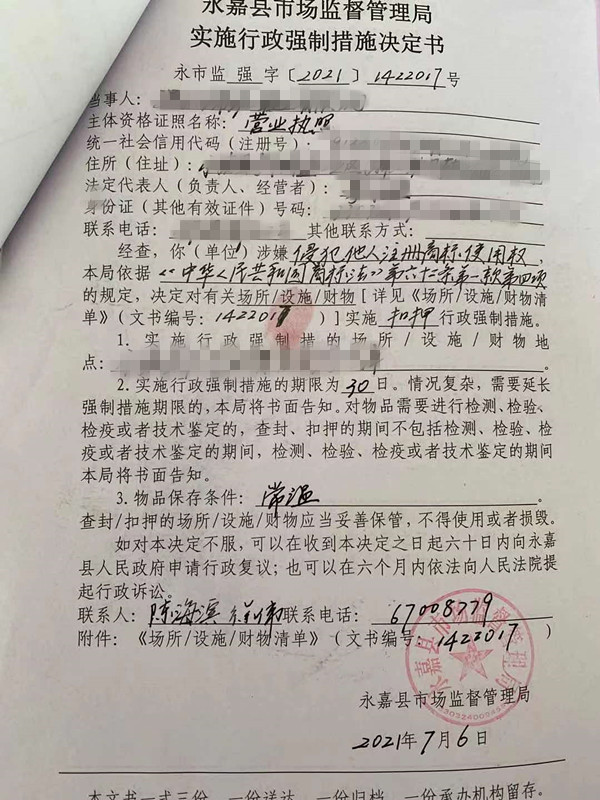 永嘉县市场监督管理局
实施行政强制措施决定书
永市监 强 字〔2021〕1422017号
当事人：
主体资格证照名称：营业执照
统一社会信用代码（注册号）：
住所（住址）：
法定代表人（负责人、经营者）：
身份证（其他有效证件）号码：
联系电话： 其他联系方式：
经查，你（单位）涉嫌 侵犯他人注册商标使用权，
本局依据《中华人民共和国商标法》第六十二条第一款第四项
的规定，决定对有关场所/设施/财物［详见《场所/设施/财物清
单》（文书编号：1422017）］实施 扣押 行政强制措施。
1. 实施行政强制措的场所/设施/财物地
点：
2. 实施行政强制措施的期限为30日。情况复杂，需要延长
强制措施期限的，本局将书面告知。对物品需要进行检测、检验、
检疫或者技术鉴定的，查封、扣押的期间不包括检测、检验、检
疫或者技术鉴定的期间，检测、检验、检疫或者技术鉴定的期间
本局将书面告知。
3. 物品保存条件： 常温 。
查封/扣押的场所/设施/财物应当妥善保管，不得使用或者损毁。
如对本决定不服，可以在收到本决定之日起六十日内向永嘉
县人民政府申请行政复议；也可以在六个月内依法向人民法院提
起行政诉讼。
联系人：陈海滨 联系电话：67008779
附件：《场所/设施/财物清单》（文书编号：1422017）
永嘉县市场监督管理局
永嘉县市场监督管理局
2021年7月6日
本文书一式三份，一份送达，一份归档，一份承办机构留存。